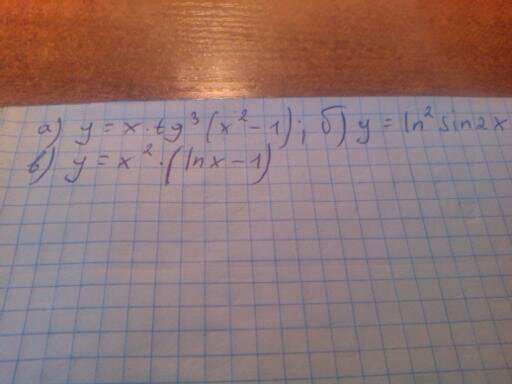 а) y = x·tg³(x²-1); б) y = ln² sin2x
в) y = x²·(lnx-1)